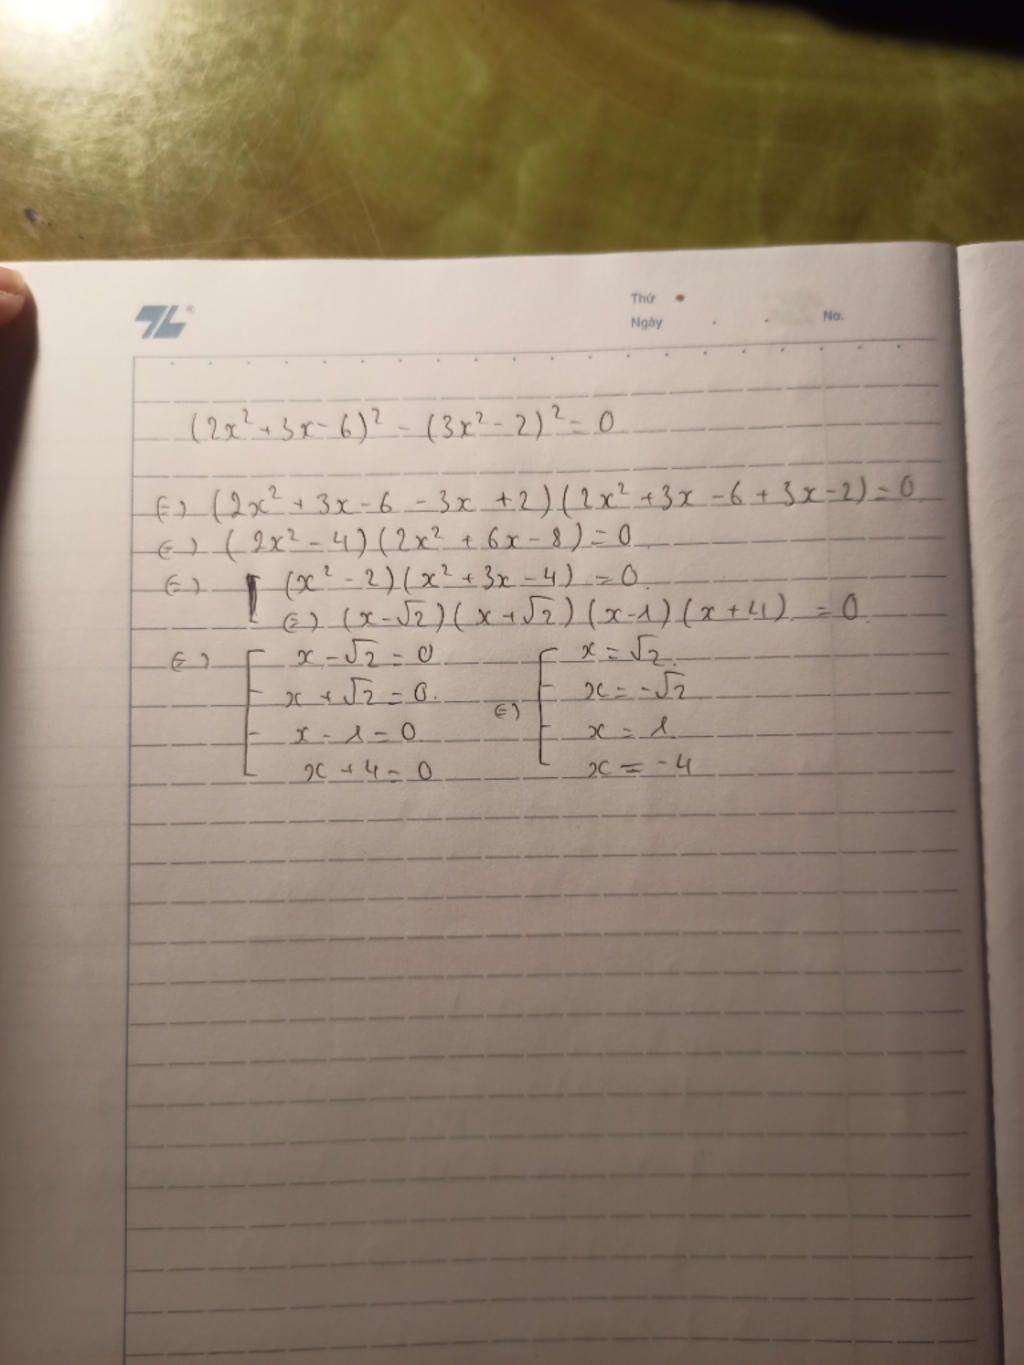 Thứ
Ngày No.
(2x² + 3x - 6)² - (3x² - 2)² = 0
(=) (2x² + 3x - 6 - 3x + 2)(2x² + 3x - 6 + 3x - 2) = 0
(=) (2x² - 4)(2x² + 6x - 8) = 0
(=) (x² - 2)(x² + 3x - 4) = 0
(=) (x - √2)(x + √2)(x - 1)(x + 4) = 0
(=) [ x - √2 = 0 (=) [ x = √2
x + √2 = 0 x = -√2
x - 1 = 0 x = 1
x + 4 = 0 x = -4